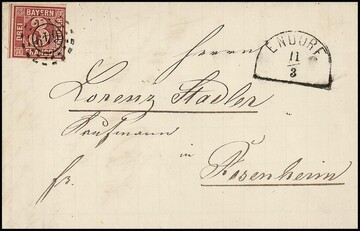 BAYERN
DREI
KREUZER
ENDORF
11
3
Herrn
Lorenz Stadler
Kaufmann
in
fr. Rosenheim